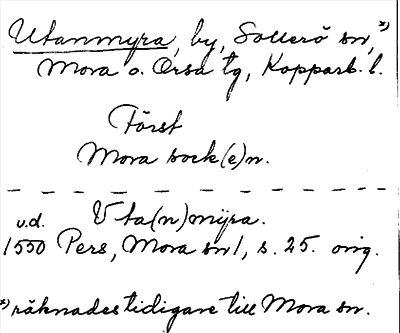 Utanmyra, by, Sollerö sn,ˣ⁾
Mora o. Orsa tg, Kopparb. l.
Först
Mora sock(e)n.
u.d. Uta(n)mÿra.
1550 Pers, Mora sn 1, s. 25. orig.
ˣ⁾ räknades tidigare till Mora sn.